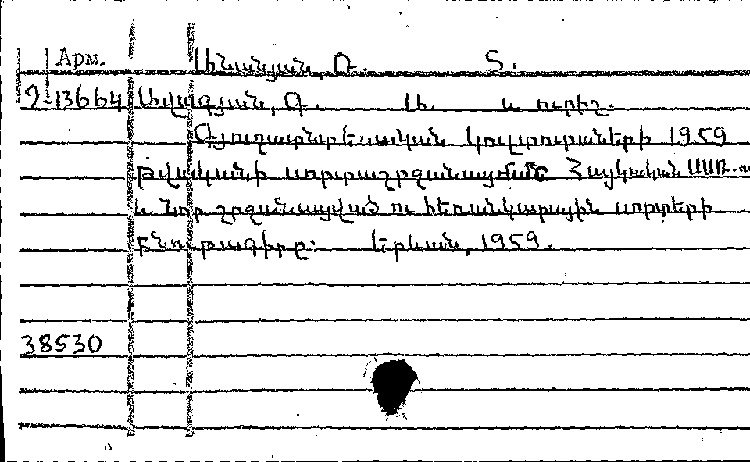 Арм. Սինանյան, Ռ. Տ.
Դ-13664 Ավագյան, Գ. Ս. և ուրիշ.
Գյուղատնտեսական կուլտուրաների 1959
թվականի սորտաշրջանացումը Հայկական ՍՍՌ-ու
և նոր շրջանացված ու հեռանկարային սորտերի
բնութագիրը: Երևան, 1959.
38530